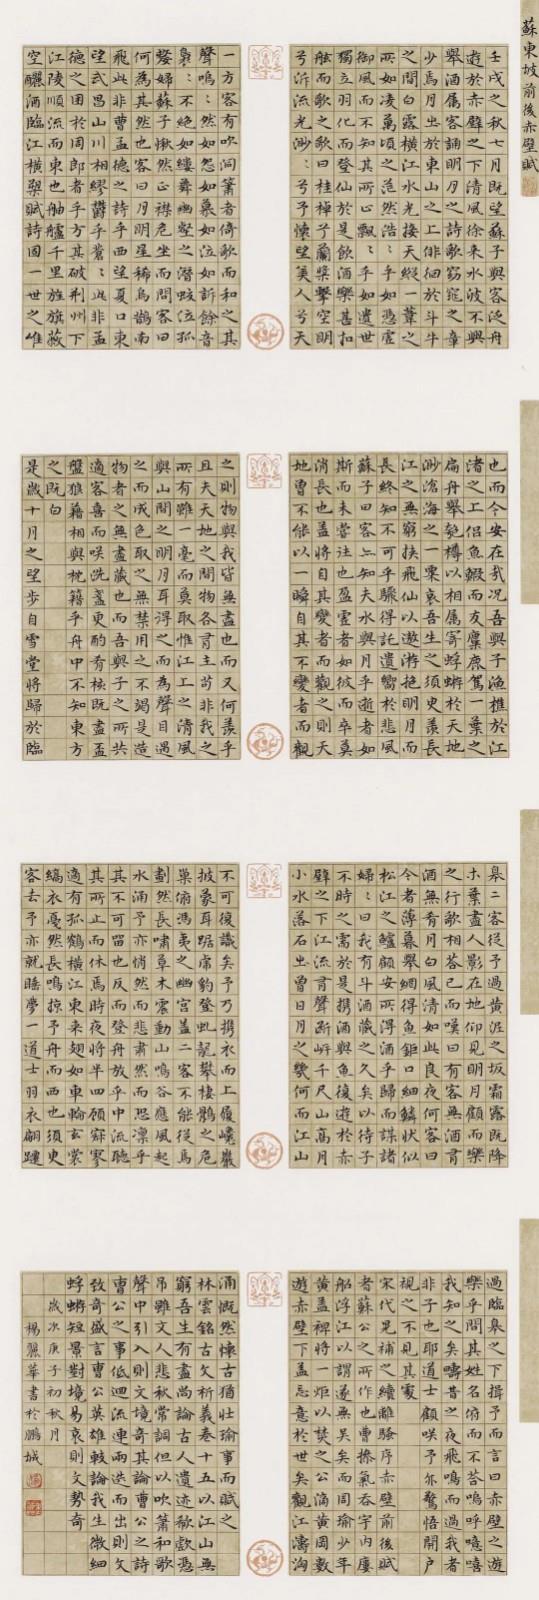 蘇東坡前後赤壁賦
壬戌之秋七月既望蘇子與客泛舟
遊於赤壁之下清風徐來水波不興
舉酒属客誦明月之詩歌窈窕之章
少焉月出於東山之上徘徊於斗牛
之間白露橫江水光接天縱一葦之
所如凌萬頃之茫然浩〻乎如憑虛
御風而不知其所止飄〻乎如遺世
獨立羽化而登仙於是飲酒樂甚扣
舷而歌之歌曰桂棹兮蘭槳擊空明
兮泝流光渺〻兮予懷望美人兮天
一方客有吹洞簫者倚歌而和之其
聲嗚〻然如怨如慕如泣如訴餘音
裊〻不絕如縷舞幽壑之潛蛟泣孤
嫠婦蘇子愀然正襟危坐而問客曰
何為其然也客曰月明星稀烏鵲南
飛此非曹孟德之詩乎西望夏口東
望武昌山川相繆鬱乎蒼〻此非孟
德之困於周郎者乎方其破荊州下
江陵順流而東也舳艫千里旌旗蔽
空釃酒臨江橫槊賦詩固一世之雄
也而今安在哉況吾與子漁樵於江
渚之上侶魚蝦而友麋鹿駕一葉之
扁舟舉匏樽以相属寄蜉蝣於天地
渺滄海之一粟哀吾生之須臾羨長
江之無窮挾飛仙以遨游抱明月而
長終知不可乎驟得託遺響於悲風
蘇子曰客亦知夫水與月乎逝者如
斯而未嘗往也盈虛者如彼而卒莫
消長也蓋將自其變者而觀之則天
地曾不能以一瞬自其不變者而觀
之則物與我皆無盡也而又何羨乎
且夫天地之間物各有主苟非我之
所有雖一毫而莫取惟江上之清風
與山間之明月耳得之而為聲目遇
之而成色取之無禁用之不竭是造
物者之無盡藏也而吾與子之所共
適客喜而笑洗盞更酌肴核既盡盃
盤狼藉相與枕籍乎舟中不知東方
之既白
是歲十月之望步自雪堂將歸於臨
皋二客從予過黃泥之坂霜露既降
木葉盡人影在地仰見明月顧而樂
之行歌相答已而嘆曰有客無酒有
酒無肴月白風清如此良夜何客曰
今者薄暮舉網得魚鉅口細鱗狀似
松江之鱸顧安所得酒乎歸而謀諸
婦〻曰我有斗酒藏之久矣以待子
不時之需於是攜酒與魚復遊於赤
壁之下江流有聲斷岸千尺山高月
小水落石出曾日月之幾何而江山
不可復識矣予乃攜衣而上履巉巖
披蒙茸踞虎豹登虬龍攀棲鶻之危
巢俯馮夷之幽宮蓋二客不能從焉
劃然長嘯草木震動山鳴谷應風起
水涌予亦悄然而悲肅然而恐凜乎
其不可留也反而登舟放乎中流聽
其所止而休焉時夜將半四顧寂寥
適有孤鶴橫江東來翅如車輪玄裳
縞衣戛然長鳴掠予舟而西也須臾
客去予亦就睡夢一道士羽衣翩躚
過臨皋之下揖予而言曰赤壁之遊
樂乎問其姓名俯而不答嗚呼噫嘻
我知之矣疇昔之夜飛鳴而過我者
非子也耶道士顧笑予亦驚悟開戶
視之不見其處
宋代晁補之續離騷序赤壁前後賦
者蘇公之所作也曹操氣吞宇內屢
船浮江以謂遂無吳矣而周瑜少年
黃蓋裨將一炬以焚之公謫黃岡數
遊赤壁下蓋忘意於世矣觀江濤洶
涌慨然懷古猶壯瑜事而賦之
林雲銘古文析義卷十五以江山無
窮吾生有盡尚論古人遺迹欷歔憑
吊雖文人悲秋常調但以吹簫和歌
聲中引入則文境奇其論曹公之詩
曹公之事低迴流連兩迭而出則文
致奇盛言曹公英雄較論我生微細
蜉蝣短景對境易哀則文勢奇
歲次庚子初秋月
楊麗華書於鵬城